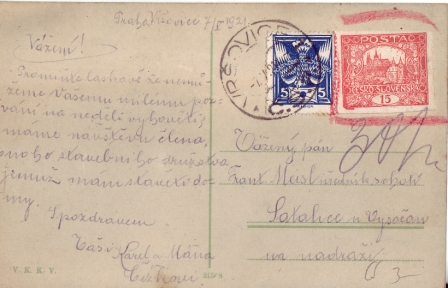 Praha Vršovice 7/ 1921.
Vážení!
Promiňte laskavě že nemů-
žeme Vašemu milému poz-
vání na neděli vyhověti
máme návštěvu člena,
stavebního družstva
jemuž mám stavěti do-
my.
S pozdravem
Vaši Karel a Máňa
V. K. K. V.
VRŠOVICE
5 5
POŠTA
ČESKO-SLOVENSKÁ
15
Vážený pan
Satalice u Vysočan
na nádraží
3